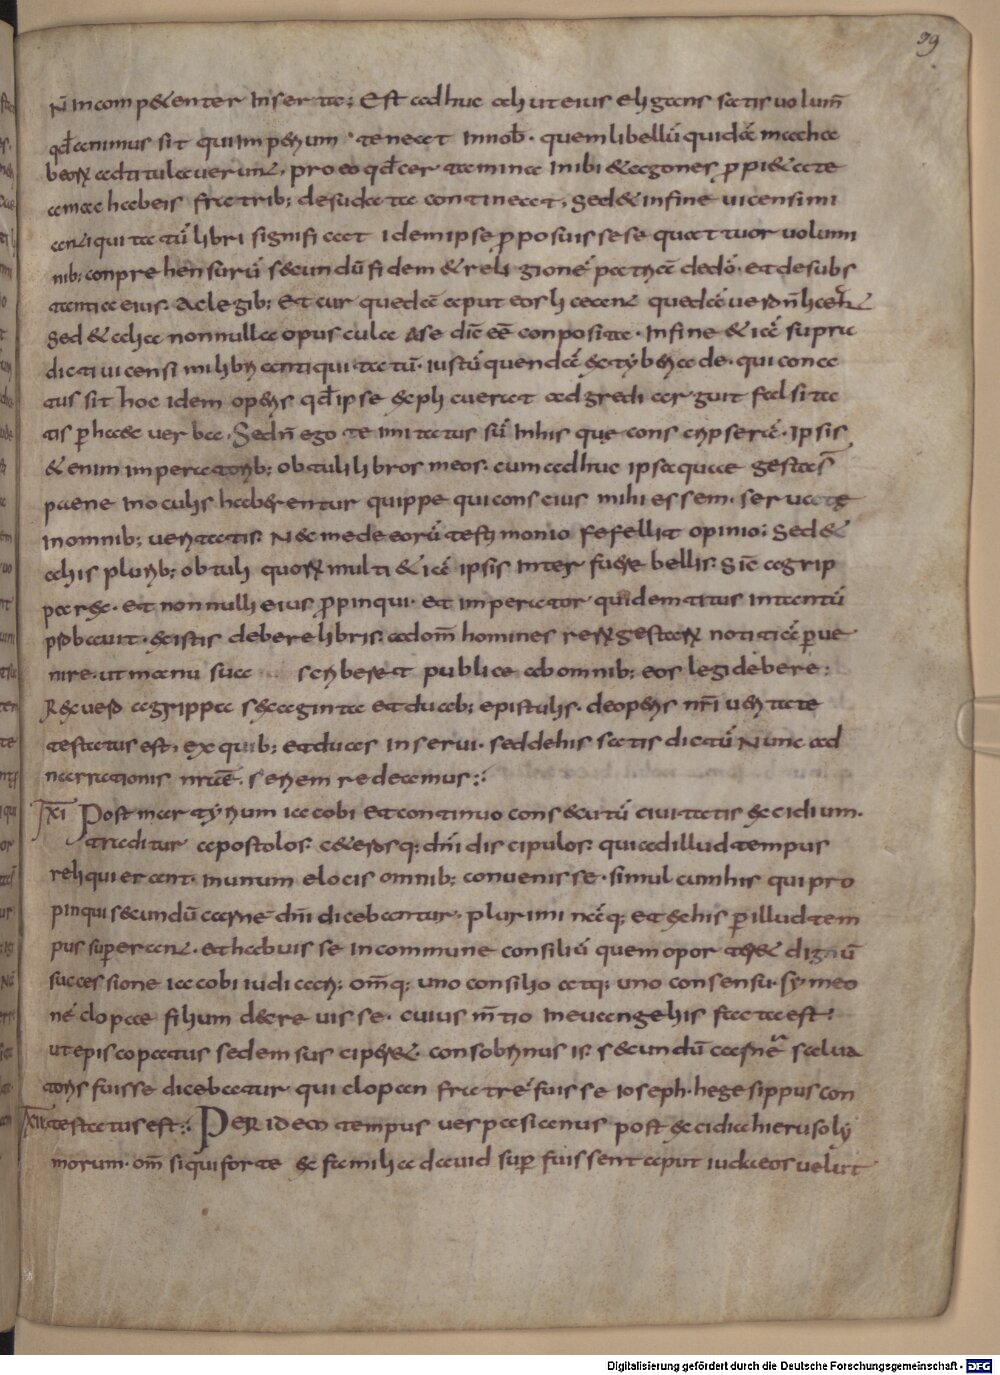 39
N̄ incompetenter inserta; Est adhuc alij ut eius eligans satis uolum̄
qd̄ animus sit qui imperium · teneat innob̄ · quem libellū quidā macha
beorꝝ adtitulauerunt, pro eo qd̄ certamina inibi & agones ꝓpi&ate
amachabeis fratrib; desudata contineat, sed & infine uicensimi
antiquitatū libri significat idem ipse ꝓposuisse se quattuor uolumi
nib; conprehensurū secundū fidem & religionē patriā dedō · et desubs
tantia eius · ac legib; Et cur quedā aput eos liceant quedā uero n̄ liceant
sed & alia nonnulla opuscula a se dic̄ eē conposita · infine & iā supra
dicti uicensimi libri antiquitatū · iustū quendā detyberiade · qui cona
tus sit hoc idem operis qd̄ ipse expliauerat adgredi arguit falsita
tis ꝑ haec uerba · Sed n̄ ego te imitatus sū inhis que conscripserā · ipsis
& enim imperatorib; obtuli libros meos cum adhuc ipsa quae gestaes̄
paene inoculis haberentur quippe qui conscius mihi essem · seruatae
inomnib; ueritatis Nec me de eorū testimonio fefellit opinio; Sed &
aliis plurib; obtuli quorꝝ multi & iā ipsis interfuere bellis Sic̄ agrip
pa rex · et nonnulli eius ꝓpinqui · et imperator quidem titus intantū
probauit · existis debere libris adom̄ homines rerꝝ gestarꝝ notitiā ꝑue
nire · ut manu sua scriberet publice abomnib; eos legi debere;
Rex uero agrippa sexaginta et duab; epistulis · de operis nr̄i ueritate
testatus est, ex quib; et duas inserui · sed dehis satis dictū Nunc ad
narrationis nrāe seriem redeamus:;
XI Post martyrium iacobi et continuo consecutū ciuitatis excidium ·
traditur apostolos ceterosq; dn̄i discipulos qui adillud tempus
reliqui erant · inunum elocis omnib; conuenisse · simul cumhis qui pro
pinqui secundū carnē dn̄i dicebantur · plurimi nāq; et exhis ꝑ illud tem
pus superant · et habuisse incommune consiliū quem oporteret dignū
successione iacobi iudicari; om̄q; uno consilio atq; uno consensu · symeo
nē clopae filium decreuisse · cuius m̄tio ineuangeliis facta est;
ut episcopatus sedem susciperet · consobrinus is secundū carnē salua
toris fuisse dicebatur qui clopan fratrē fuisse ioseph · hegesippus con
XII testatus est:; Per idem tempus uespasianus post excidia hierusoly
morum · om̄ siqui forte ex familia dauid suꝑ fuissent aput iudaeos uelut
Digitalisierung gefördert durch die Deutsche Forschungsgemeinschaft - DFG